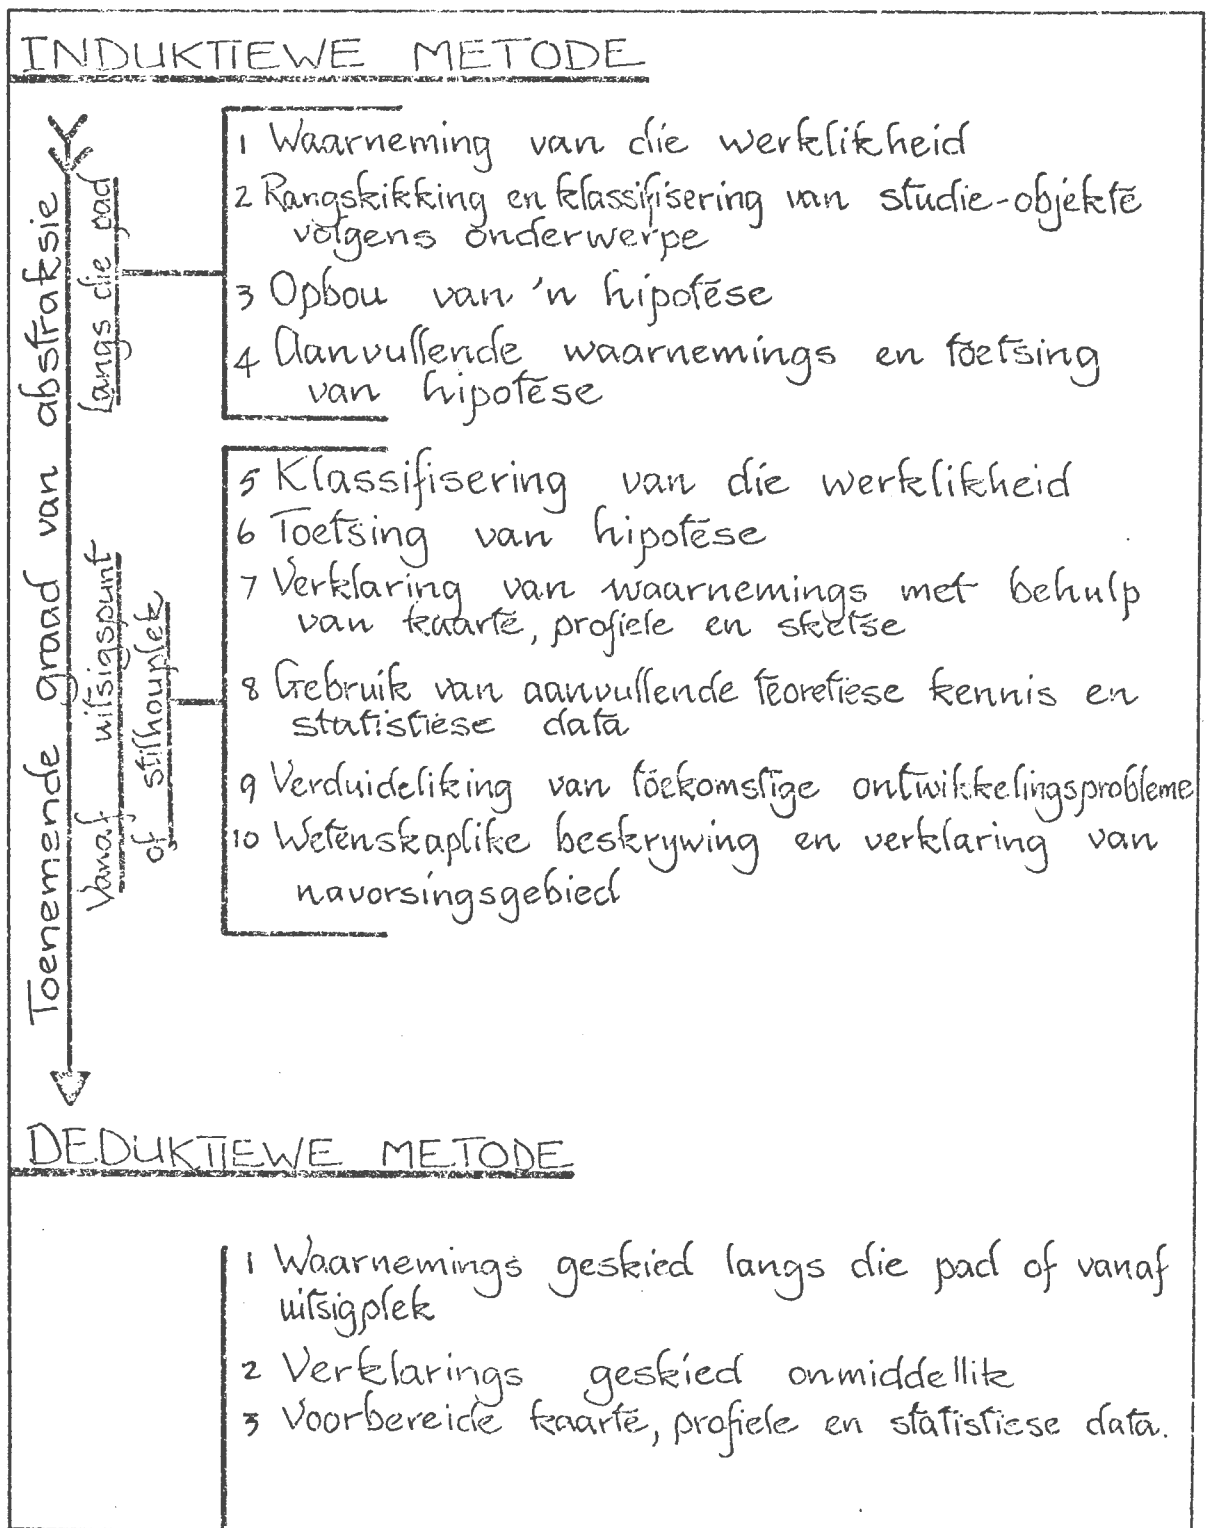 INDUKTIEWE METODE
Toenemende graad van abstraksie
Langs die pad
1 Waarneming van die werklikheid
2 Rangskikking en klassifisering van studie-objekte
volgens onderwerpe
3 Opbou van 'n hipotese
4 Aanvullende waarnemings en toetsing
van hipotese
Vanaf uitsigspunt
of stilhouplek
5 Klassifisering van die werklikheid
6 Toetsing van hipotese
7 Verklaring van waarnemings met behulp
van kaarte, profiele en sketse
8 Gebruik van aanvullende teoretiese kennis en
statistiese data
9 Verduideliking van toekomstige ontwikkelingsprobleme
10 Wetenskaplike beskrywing en verklaring van
navorsingsgebied
DEDUKTIEWE METODE
1 Waarnemings geskied langs die pad of vanaf
uitsigplek
2 Verklarings geskied onmiddellik
3 Voorbereide kaarte, profiele en statistiese data.